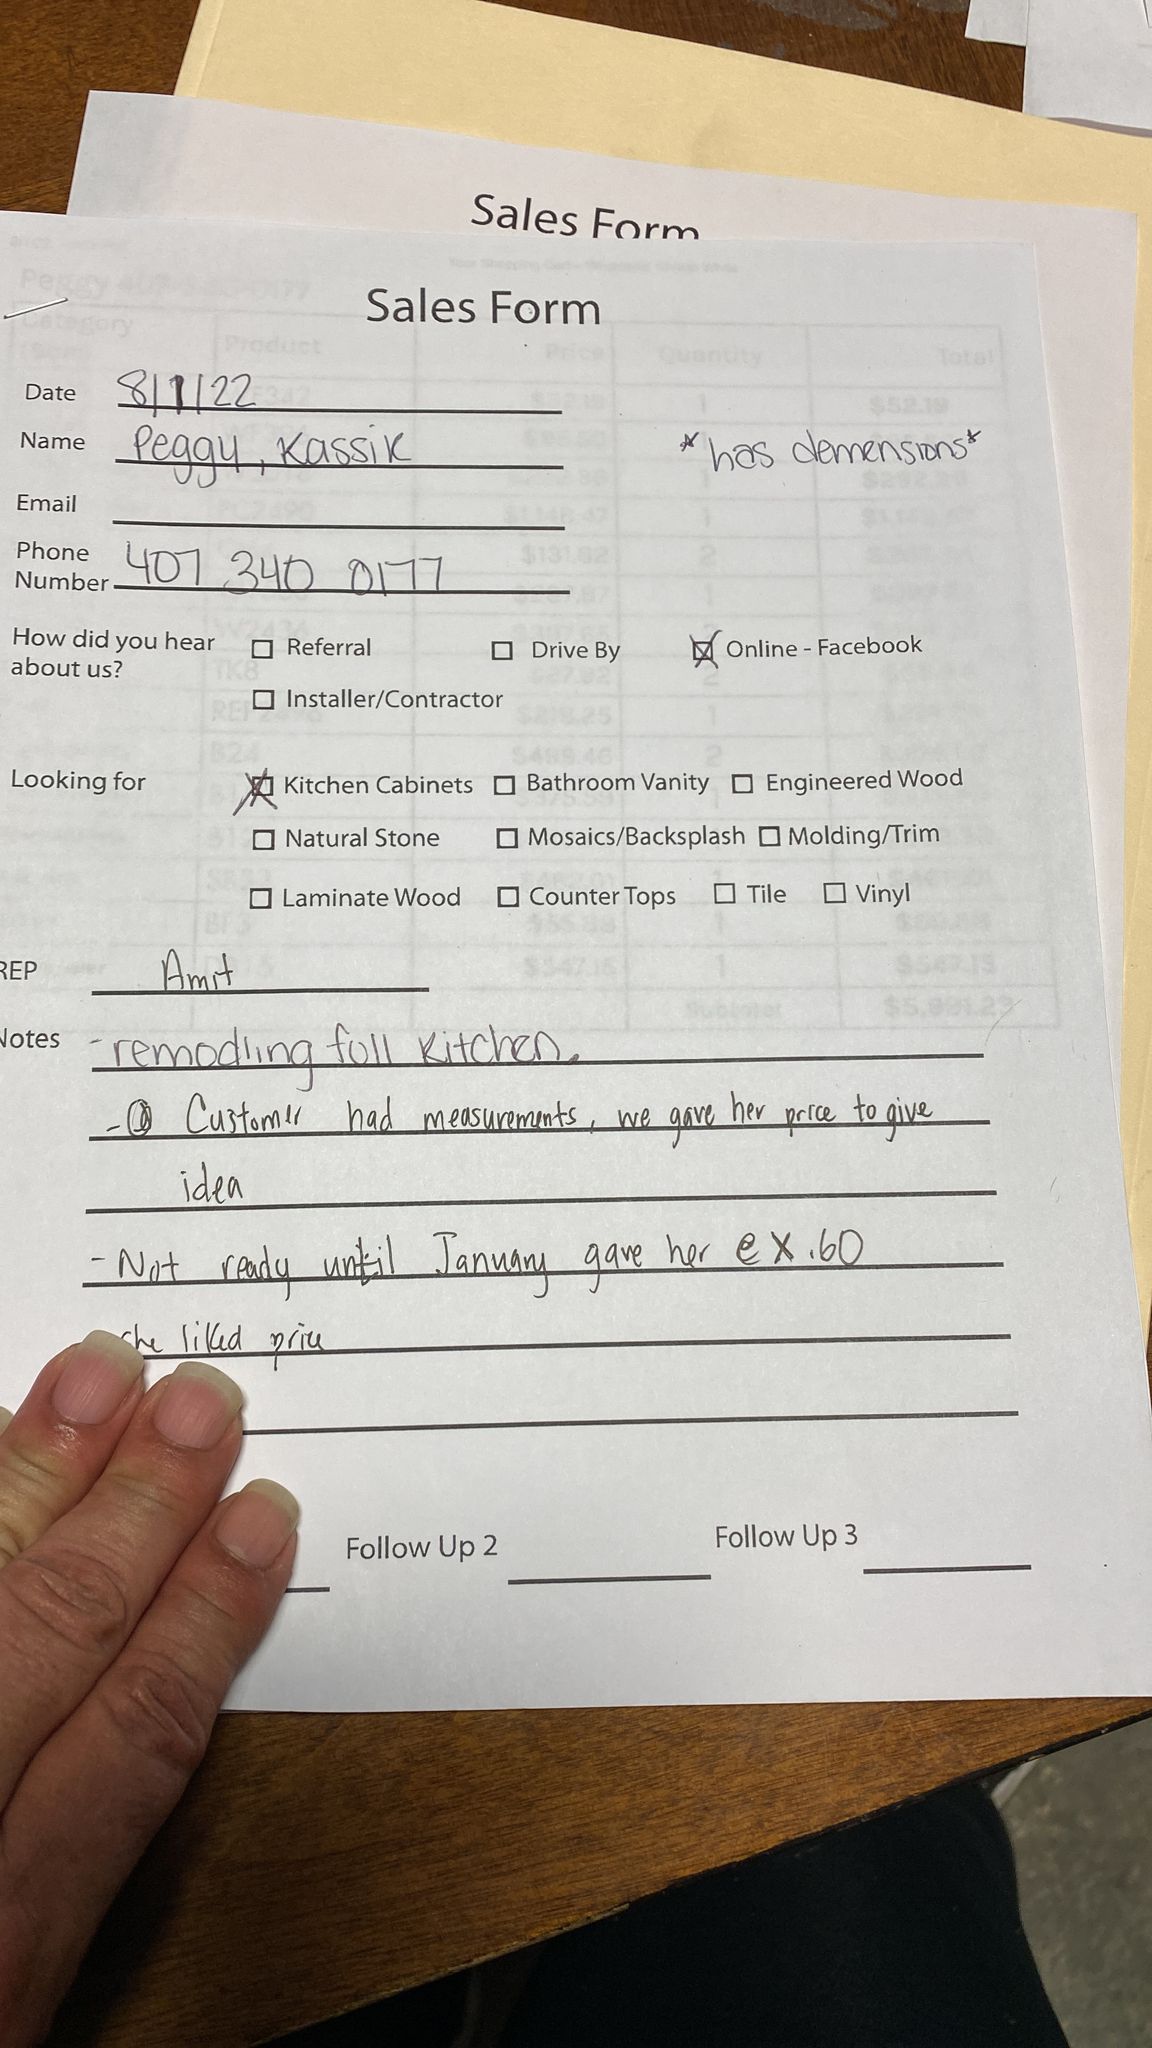 Sales Form
Sales Form
Date 8/1/22
Name Peggy, Kassik *has demensions*
Email
Phone Number 407 340 0177
How did you hear about us? Referral Drive By Online - Facebook
Installer/Contractor
Looking for Kitchen Cabinets Bathroom Vanity Engineered Wood
Natural Stone Mosaics/Backsplash Molding/Trim
Laminate Wood Counter Tops Tile Vinyl
REP Amit
Notes - remodling full kitchen.
- Customer had measurements, we gave her price to give
idea
- Not ready until January gave her ex .60
she liked price
Follow Up 2 Follow Up 3
Peggy
Category Product Price Quantity Total
1 $52.19
$131.82 2
TK8 $27.92 2
$218.25 1
B24 $489.46 2
BF3 1
$347.15 1
Subtotal